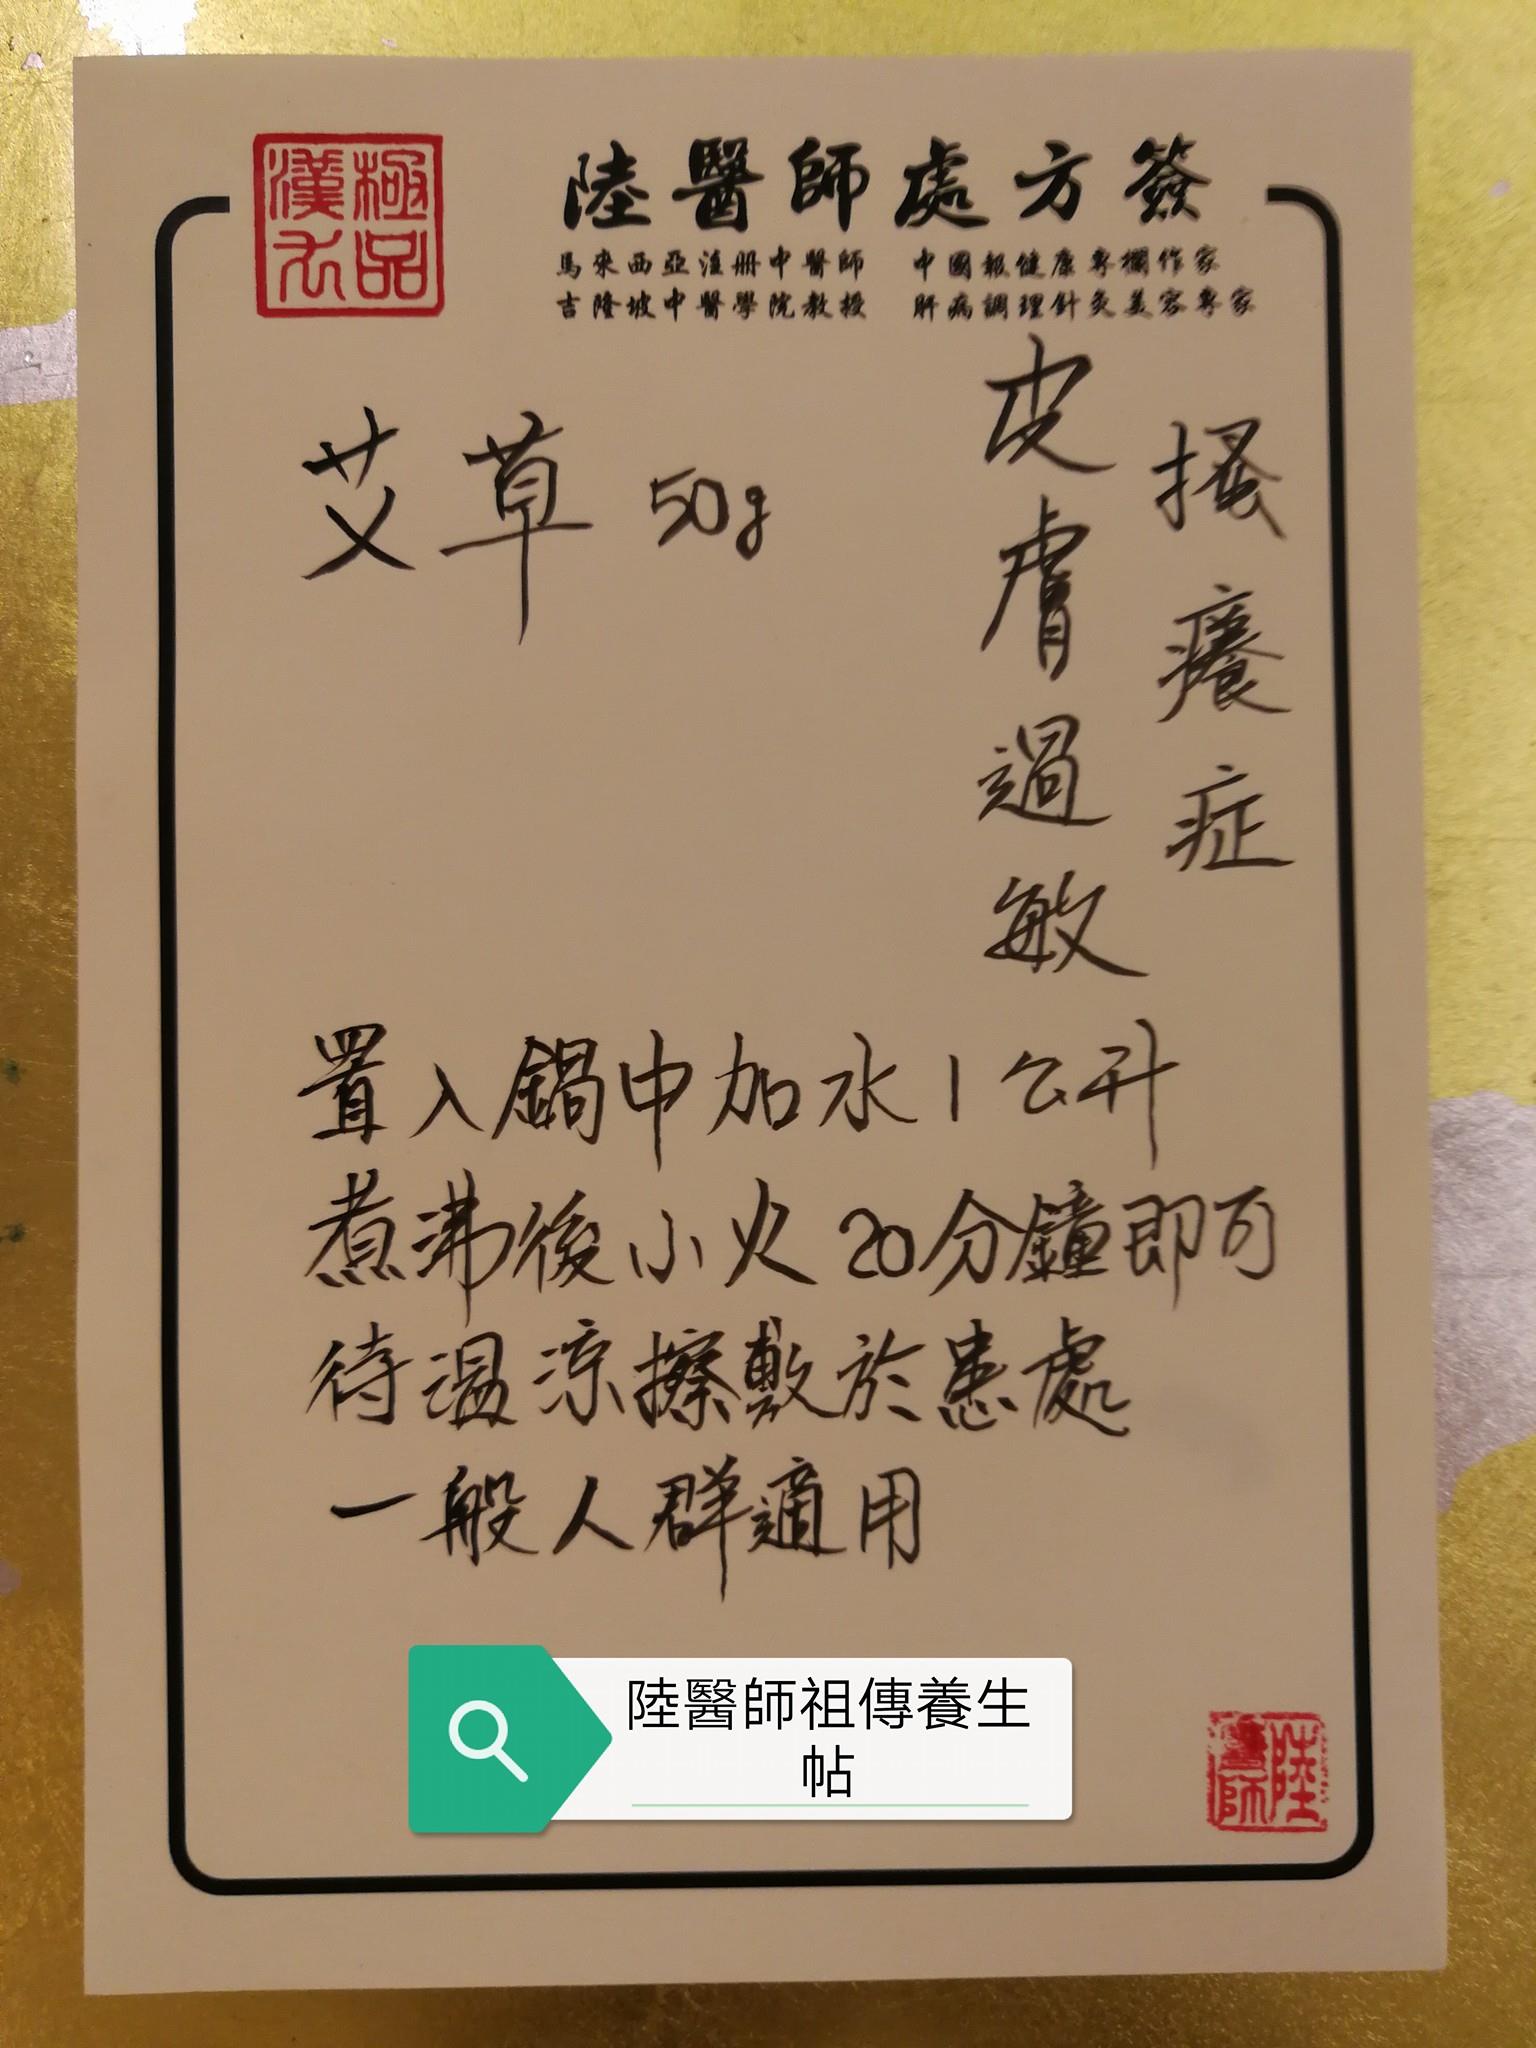 極品
漢方
陸醫師處方簽
馬來西亞註冊中醫師 中國報健康專欄作家
吉隆坡中醫學院教授 肝病調理針灸美容專家
搔癢症
皮膚過敏
艾草 50g
置入鍋中加水1公升
煮沸後小火20分鐘即可
待溫涼擦敷於患處
一般人群適用
陸醫師祖傳養生
帖
陸醫師